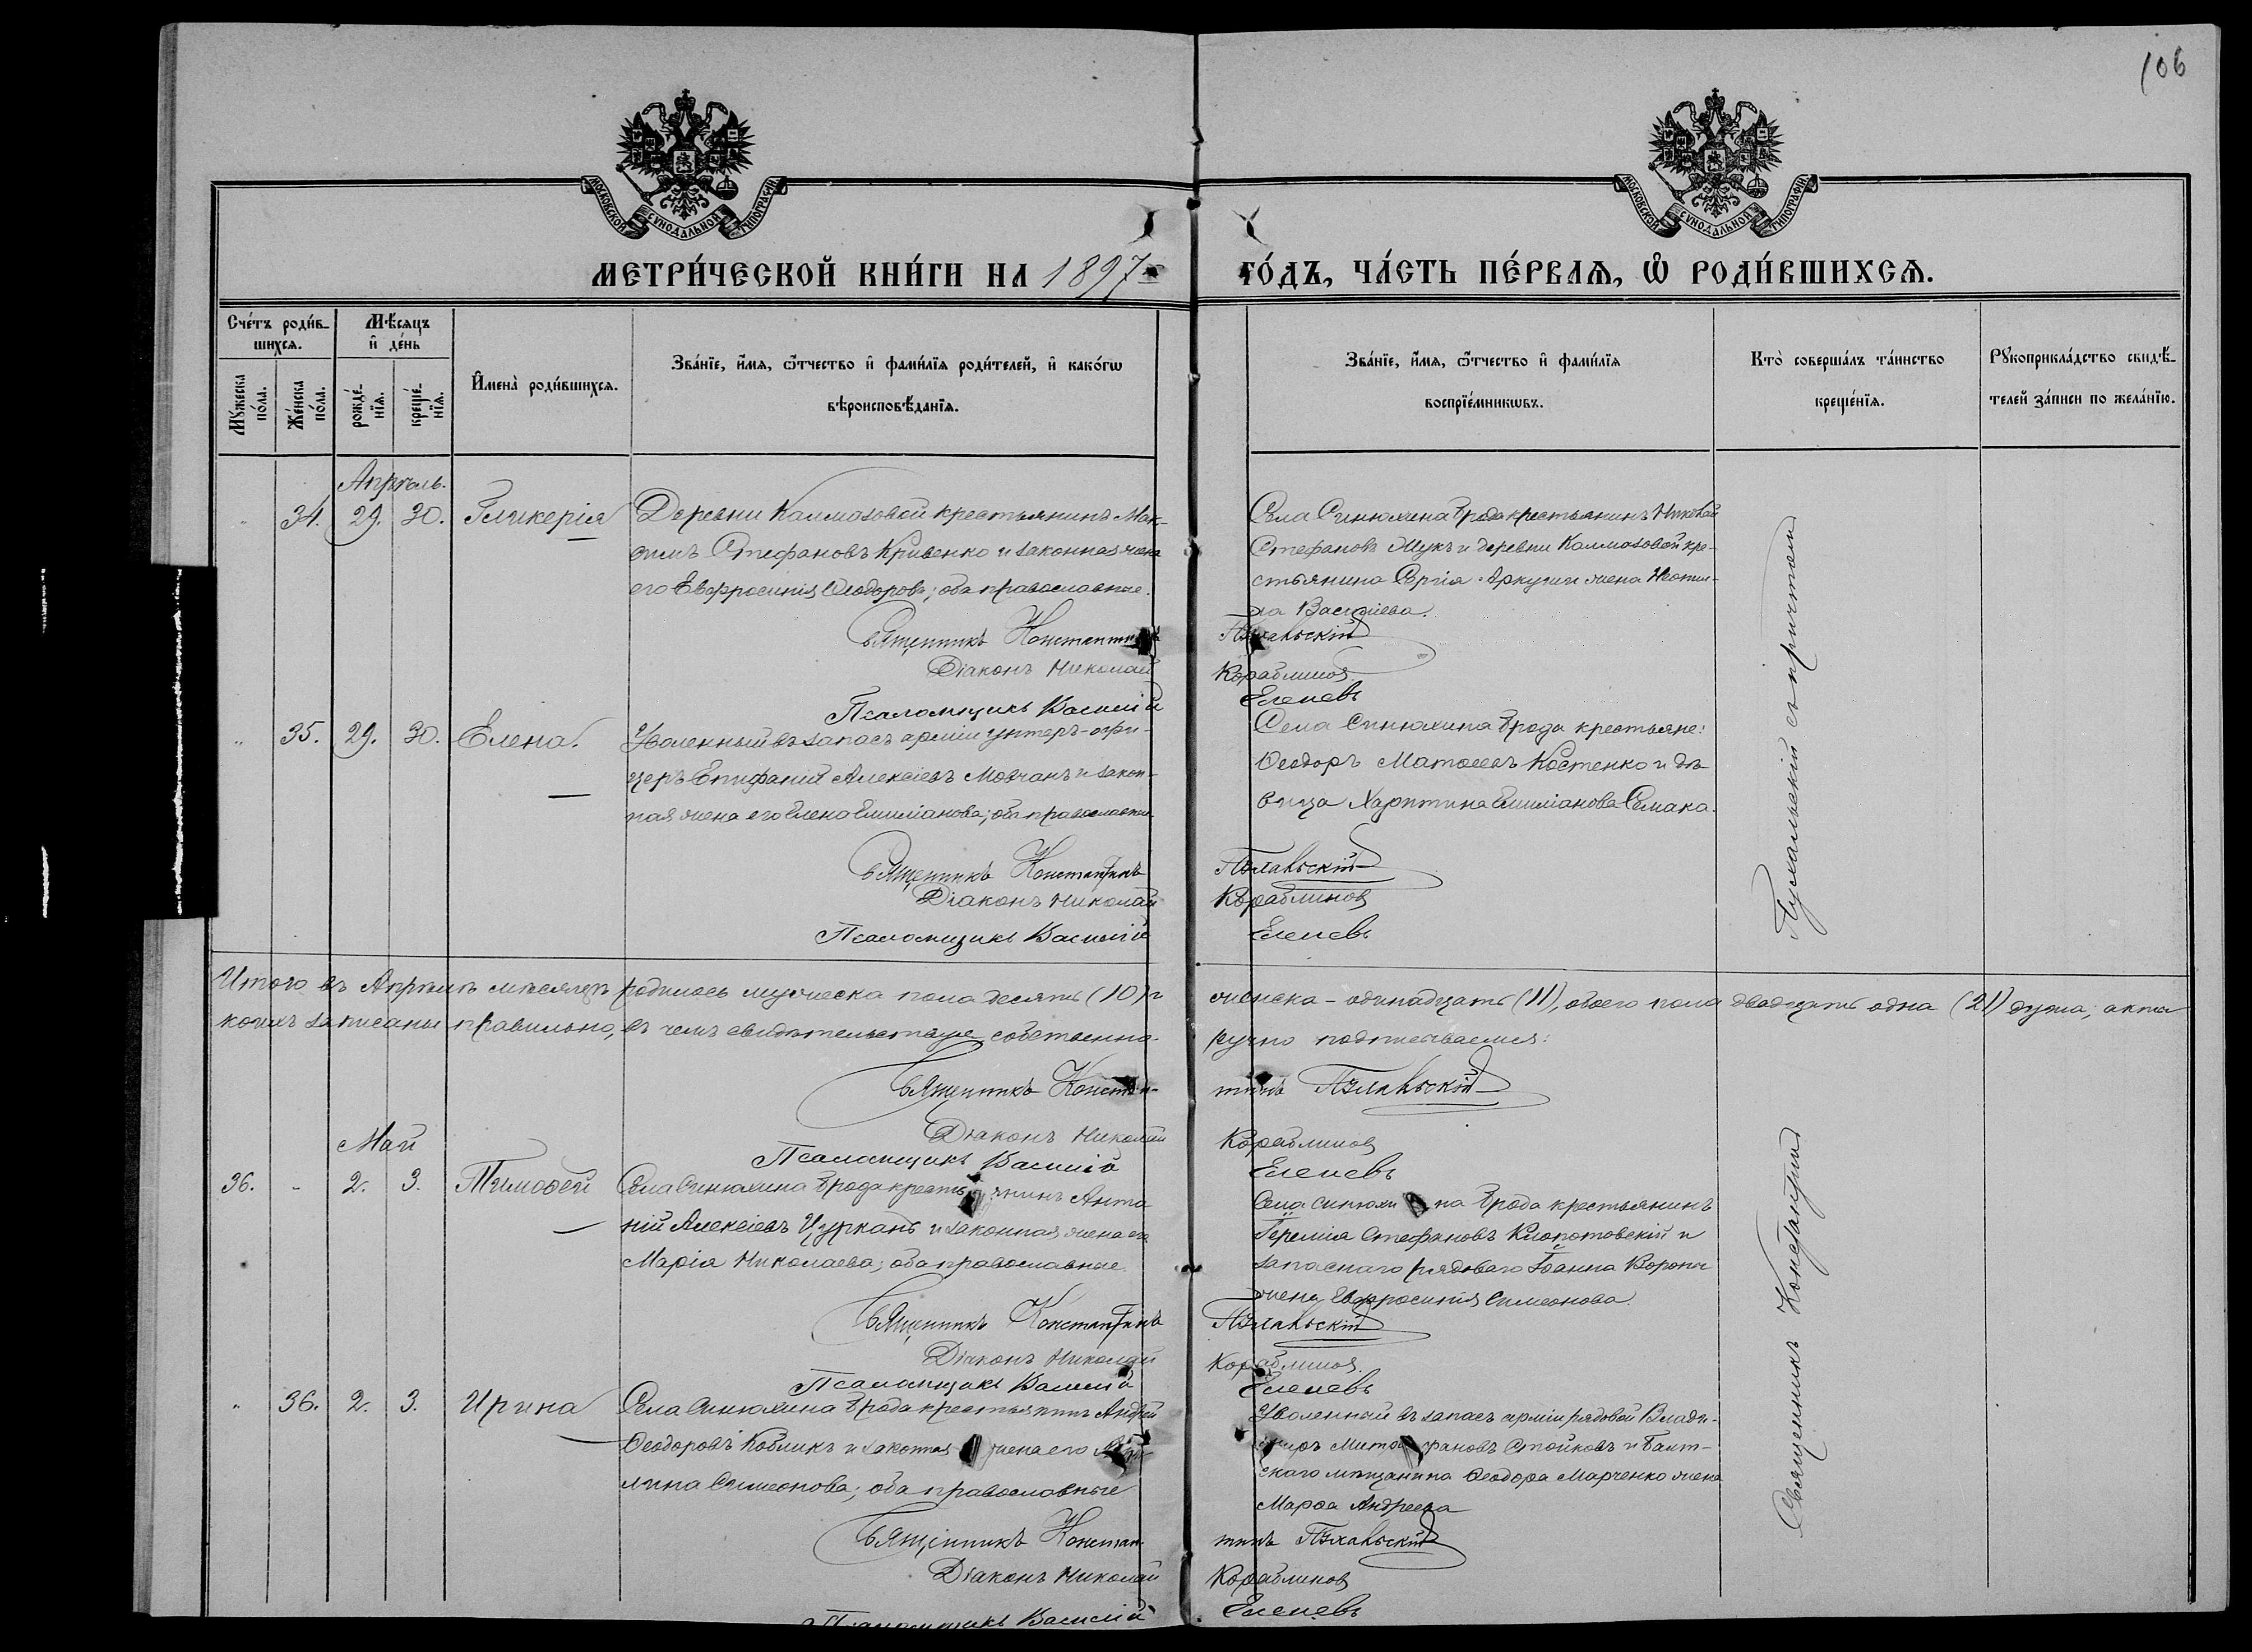 106
МОСКОВСКОЙ СѴНОДАЛЬНОЙ ТИПОГРАФІИ
МОСКОВСКОЙ СѴНОДАЛЬНОЙ ТИПОГРАФІИ
МЕТРИ́ЧЕСКОЙ КНИ́ГИ НА 1897 ГО́ДЪ, ЧА́СТЬ ПЕ́РВАѦ, Ѡ҆ РОДИ́ВШИХСѦ.
Сче́тъ роди́в-
шихсѧ.
Мѣ́сѧцъ
и҆ де́нь
Мꙋжеска
по́ла.
Же́нска
по́ла.
рожде́-
нїѧ.
креще́-
нїѧ.
И҆мена̀ роди́вшихсѧ.
Зва́нїе, и҆́мѧ, ѻ҆́тчество и҆ фами́лїѧ роди́телей, и҆ како́гѡ
вѣроисповѣ́данїѧ.
Зва́нїе, и҆́мѧ, ѻ҆́тчество и҆ фами́лїѧ
воспрїе́мникѡвъ.
Кто̀ соверша́лъ та́инство
креще́нїѧ.
Рꙋкоприкла́дство свидѣ́-
телей за́писи по жела́нїю.
Апрѣль.
" 34. 29. 30. Гликерія
Деревни Калмазовой крестьянинъ Мак-
симъ Стефановъ Кривенко и законная жена
его Евфросинія Ѳеодорова; оба православные.
Священникъ Константинъ
Діаконъ Николай Кораблиновъ
Псаломщикъ Василій Еленевъ
Села Синюхина Брода крестьянинъ Николай
Стефановъ Жукъ и деревни Калмазовой кре-
стьянина Сергія жена
Васильева.
" 35. 29. 30. Елена.
Уволенный въ запасъ арміи унтеръ-офи-
церъ Епифаній Алексіевъ Мовчанъ и закон-
ная жена его Елена Емиліанова; оба православные
Священникъ Константинъ
Діаконъ Николай Кораблиновъ
Псаломщикъ Василій Еленевъ
Села Синюхина Брода крестьяне:
Ѳеодоръ Матѳеевъ Костенко и дѣ-
вица Харитина Емиліанова Семака.
съ причтомъ
Итого въ Апрѣлѣ мѣсяцѣ родилось мужеска пола десять (10) и женска - одинадцать (11), обоего пола двадцать одна (21) душа, акты
коихъ записаны правильно, въ чемъ свидѣтельствуя собственно-
ручно подписываемся:
Священникъ Констан-
тинъ
Діаконъ Николай Кораблиновъ
Псаломщикъ Василій Еленевъ
Май
36. - 2. 3. Тимоѳей
Села Синюхина Брода крестьянинъ Анто
ній Алексіевъ Цурканъ и законная жена его
Марія Николаева; оба православные.
Священникъ Константинъ
Діаконъ Николай Кораблиновъ.
Псаломщикъ Василій Еленевъ
Села Синюхина Брода крестьянинъ
Іеремія Стефановъ Клопотовскій и
запаснаго рядоваго Іоанна Вороны
жена Евфросинія Симеонова.
" 36. 2. 3. Ирина
Села Синюхина Брода крестьянинъ Андрей
Ѳеодоровъ Кобликъ и законная жена его
Симеонова; оба православные
Священникъ Констан-
тинъ
Діаконъ Николай Кораблиновъ
Псаломщикъ Василій Еленевъ
Уволенный въ запасъ арміи рядовой Влади-
миръ Митрофановъ Стойковъ и Балт-
скаго мѣщанина Ѳеодора Марченко жена
Марѳа Андреева
Священникъ Константинъ